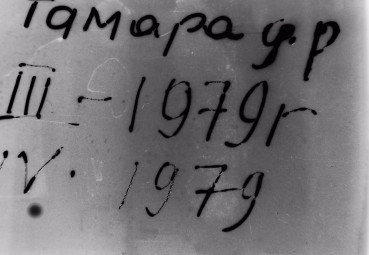 Тамара ф.р
III - 1979г
IV. 1979